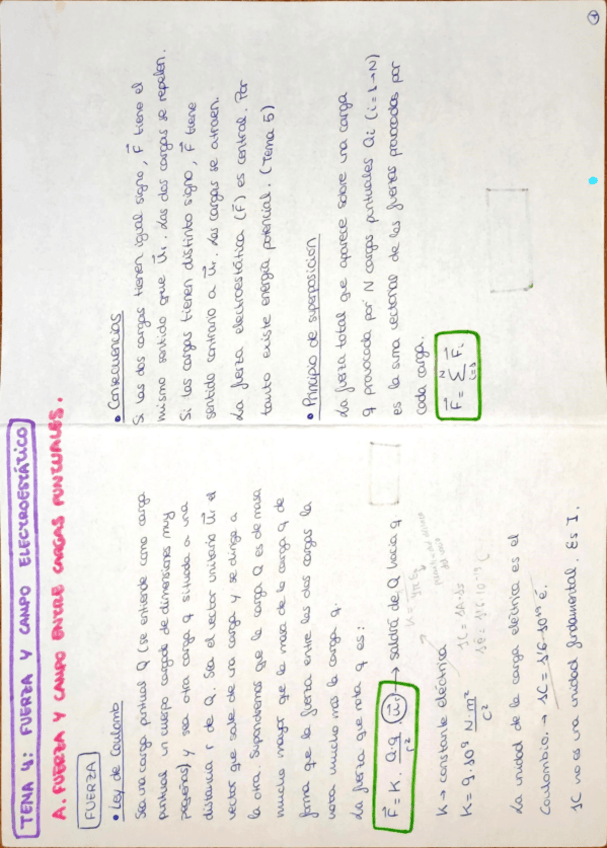 TEMA 4: FUERZA Y CAMPO ELECTROESTÁTICO
A. FUERZA Y CAMPO ENTRE CARGAS PUNTUALES.
FUERZA
• Ley de Coulomb
Sea una carga puntual Q (se entiende como carga
puntual un cuerpo cargado de dimensiones muy
pequeñas) y sea otra carga q situada a una
distancia r de Q. Sea el vector unitario Ur el
vector que sale de una carga y se dirige a
la otra. Supondremos que la carga Q es de masa
mucho mayor que la masa de la carga q de
forma que la fuerza entre las dos cargas la
nota mucho más la carga q.
La fuerza que nota q es:
F = K · Q·q / r² (Ur) → saldrá de Q hacia q
K → constante eléctrica → K = 1/4πε₀
K = 9·10⁹ N·m²/C²
1C = 1A·1s
1ē = 1'6·10⁻¹⁹ C
La unidad de la carga eléctrica es el
Coulombio. → 1C = 1'6·10¹⁹ ē.
1C no es una unidad fundamental. Es I.
• Consecuencias
Si las dos cargas tienen igual signo, F tiene el
mismo sentido que Ur. Las dos cargas se repelen.
Si las cargas tienen distinto signo, F tiene
sentido contrario a Ur. Las cargas se atraen.
La fuerza electroestática (F) es central. Por
tanto existe energía potencial. (Tema 5)
• Principio de superposición
La fuerza total que aparece sobre una carga
q provocada por N cargas puntuales Qi (i=1→N)
es la suma vectorial de las fuerzas provocadas por
cada carga.
F = N Σ i=1 Fi
1